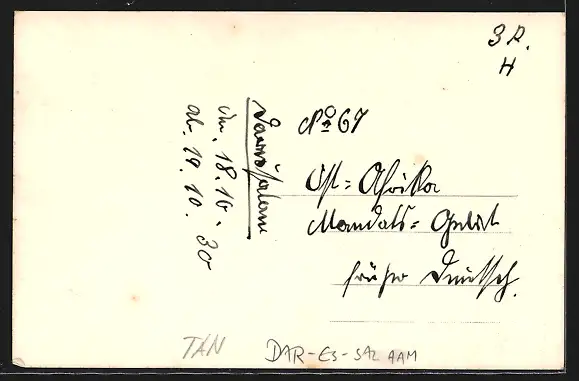 3 R.
H
No 67
Ost=Afrika
Mandats=Gebiet
früher Deutsch.
Daressalam
an. 18.10.
ab. 19.10. 30
TAN
DAR-ES-SALAAM